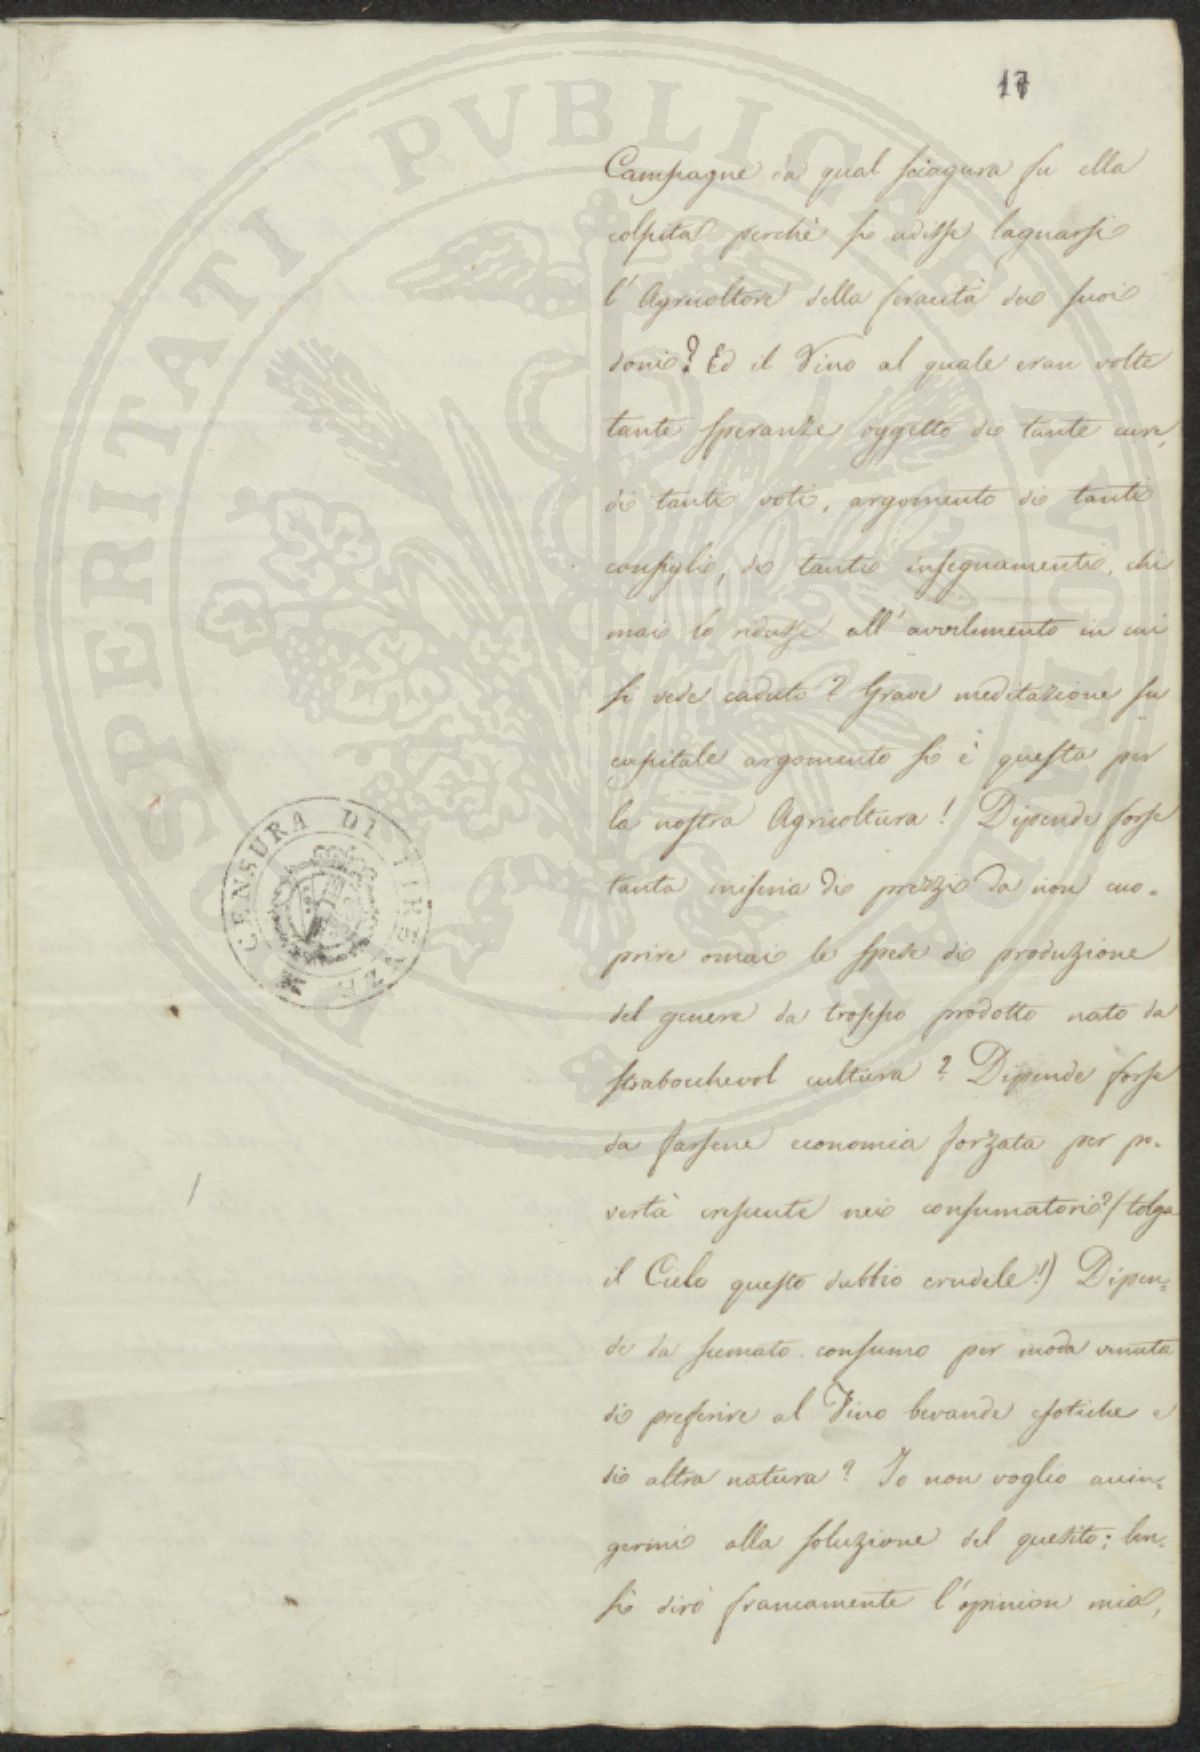 17
Campagne da qual sciagura fu ella
colpita perchè si udisse lagnarsi
l'Agricoltore della feracità dei suoi
doni? Ed il Vino al quale eran volte
tante speranze, oggetto di tante cure,
di tanti voti, argomento di tanti
consigli, di tanti insegnamenti, chi
mai lo ridusse all'avvilimento in cui
si vede caduto? Grave meditazione su
capitale argomento si è questa per
la nostra Agricoltura! Dipende forse
tanta miseria di prezzi da non cuo-
prire omai le spese di produzione
del genere da troppo prodotto nato da
strabocchevol cultura? Dipende forse
da farsene economia forzata per po-
vertà crescente nei consumatori? (tolga
il Cielo questo dubbio crudele!) Dipen-
de da scemato consumo per moda venuta
di preferire al Vino bevande esotiche e
di altra natura? Io non voglio accin-
germi alla soluzione del quesito; ben-
sì dirò francamente l'opinion mia,
CENSURA DI FIRENZE
PROSPERITATI PVBLICAE AVGENDAE